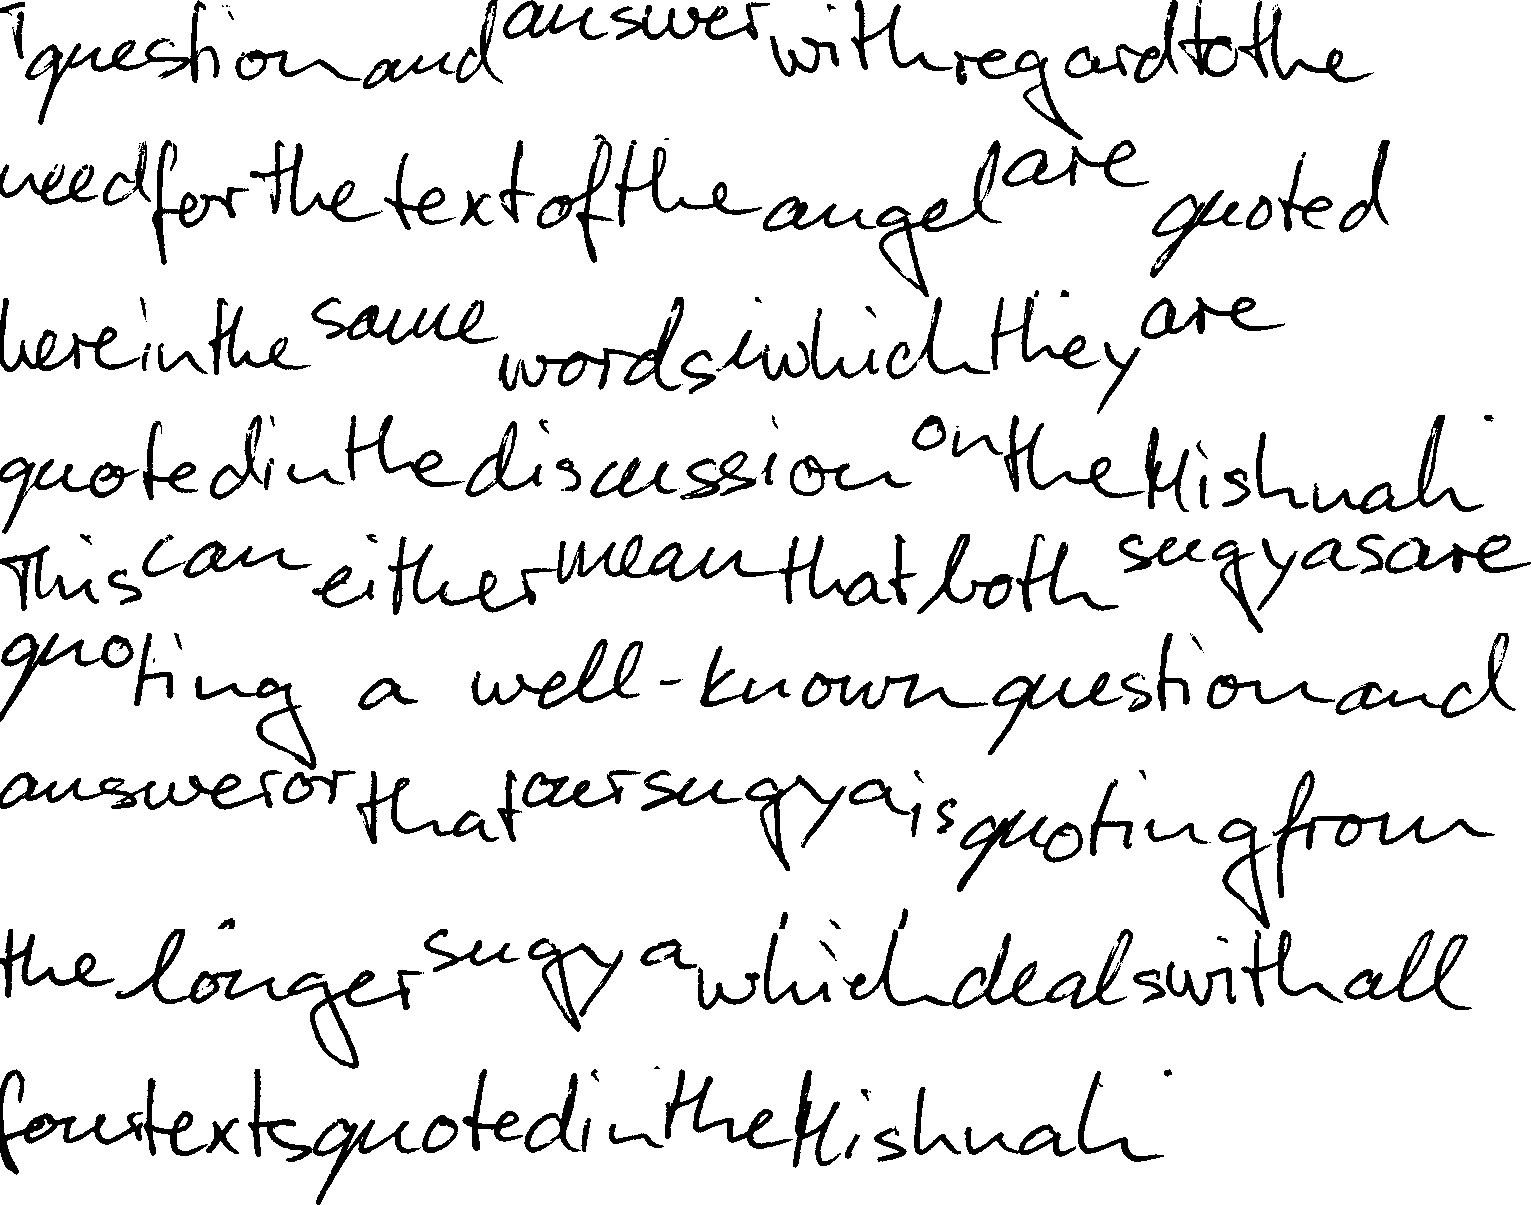 question and answer with regard to the
need for the text of the angel are quoted
here in the same words in which they are
quoted in the discussion on the Mishnah.
This can either mean that both sugyas are
quoting a well-known question and
answer or that our sugya is quoting from
the longer sugya which deals with all
four texts quoted in the Mishnah.